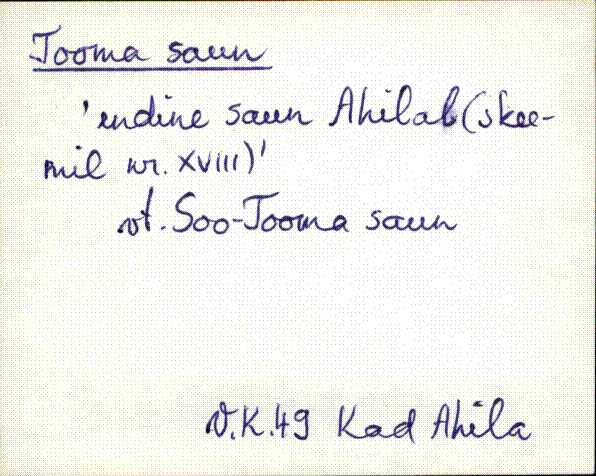 Tooma saun
'endine saun Ahilal (skee-
mil nr. XVIII)'
vt. Soo-Tooma saun
V.K.49 Kad Ahila